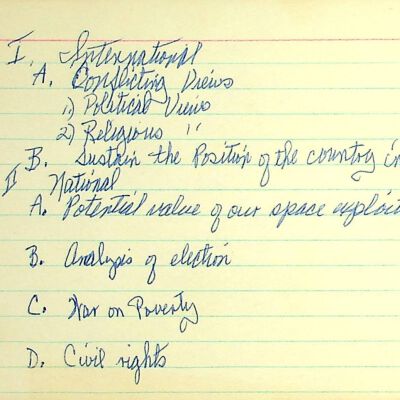 I. International
A. Conflicting Views
1) Political Views
2) Religious "
B. Sustain the Position of the country in
II National
A. Potential value of our space exploit
B. Analysis of election
C. War on Poverty
D. Civil rights